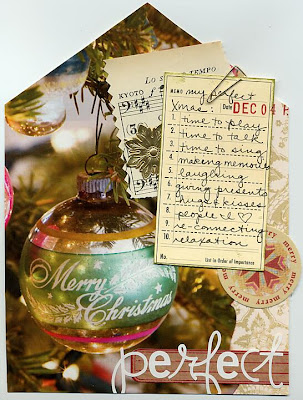 LO S TEMPO
KYOTO
MEMO my perfect
Xmas: Date DEC 04
1. time to play
2. time to talk
3. time to sing
4. making memories
5. laughing
6. giving presents
7. hugs & kisses
8. people I ♡
9. re-connecting
10. relaxation
No. List in Order of Importance
Merry
Christmas
merry merry merry merry merry
perfect